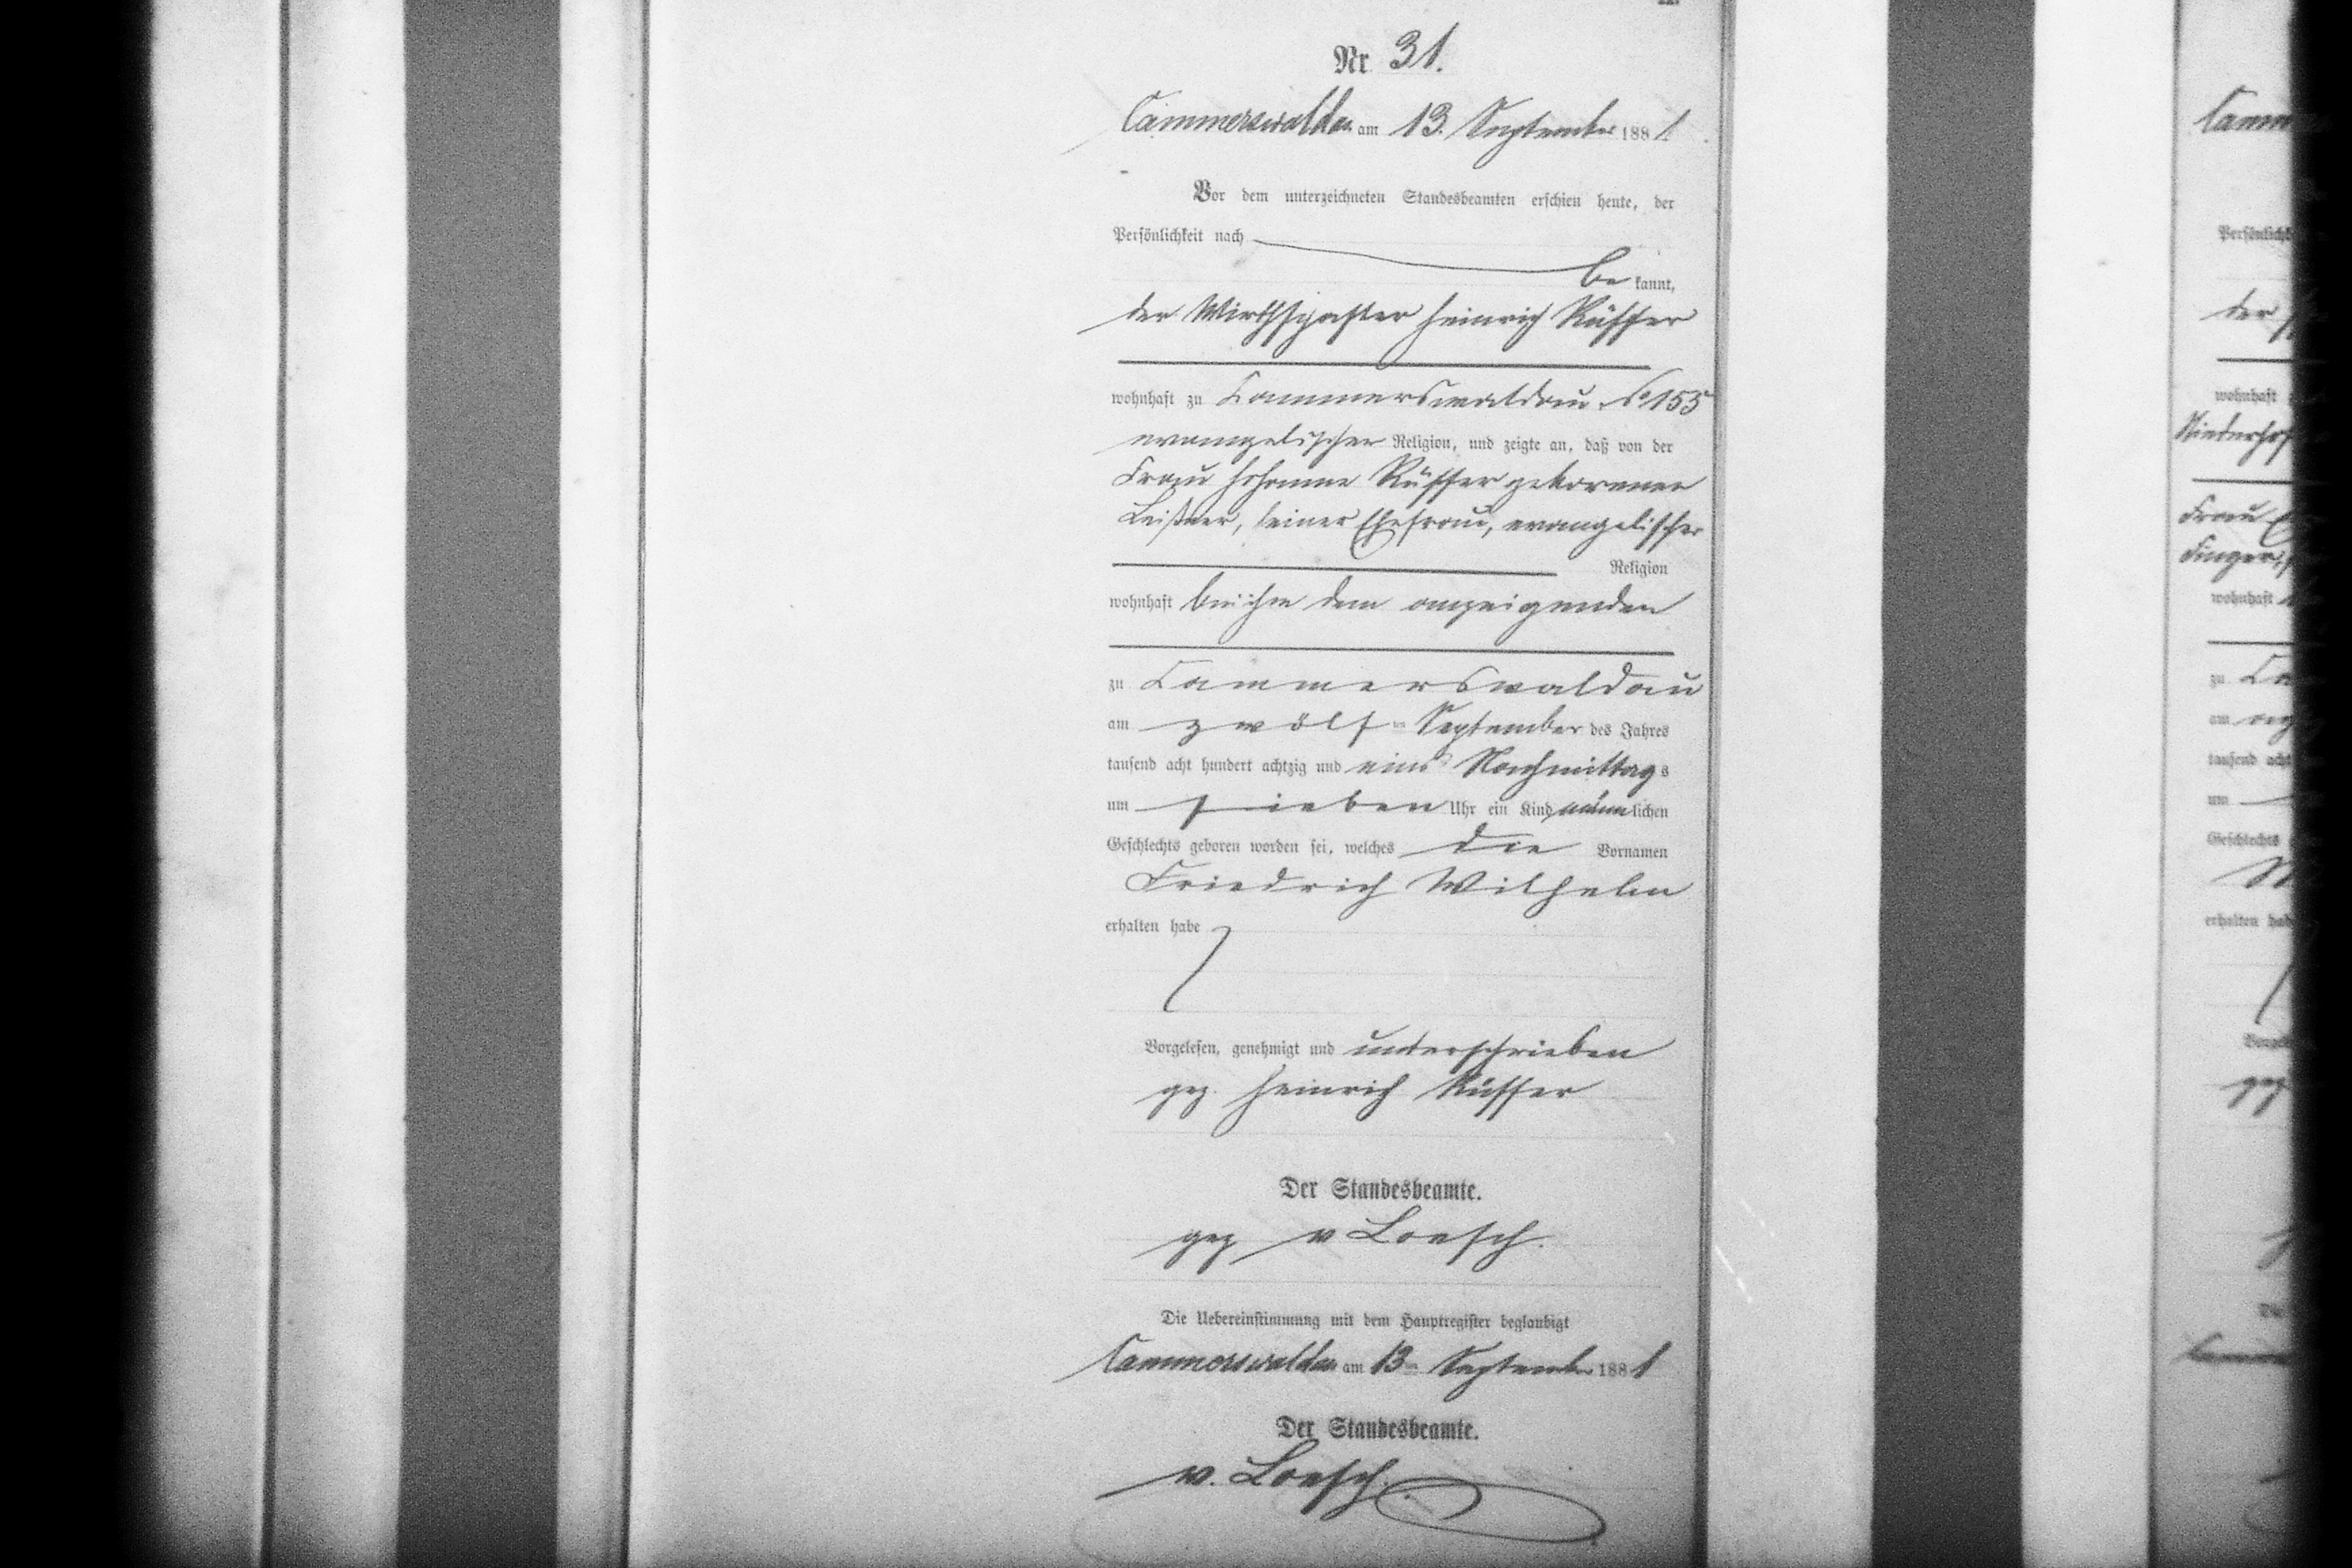 Nr. 31.
Cammerswaldau am 13. September 1881
Vor dem unterzeichneten Standesbeamten erschien heute, der
Persönlichkeit nach
be kannt,
der Wirthschafter Heinrich Rüffer
wohnhaft zu Cammerswaldau No 155
evangelischer Religion, und zeigte an, daß von der
Frau Johanne Rüffer geborenen
Leißner, seiner Ehefrau, evangelischer
Religion
wohnhaft bei ihm dem anzeigenden
zu Cammerswaldau
am zwölften September des Jahres
tausend acht hundert achtzig und eins Nachmittags
um sieben Uhr ein Kind männlichen
Geschlechts geboren worden sei, welches die Vornamen
Friedrich Wilhelm
erhalten habe
Vorgelesen, genehmigt und unterschrieben
gez. Heinrich Rüffer
Der Standesbeamte.
gez v Loesch.
Die Uebereinstimmung mit dem Hauptregister beglaubigt
Cammerswaldau am 13ten September 1881
Der Standesbeamte.
v. Loesch.
Persönlichk
der
wohnhaft
Frau
wohnhaft
zu Ca
am
tausend acht
um
Geschlechts
erhalten hab
gez